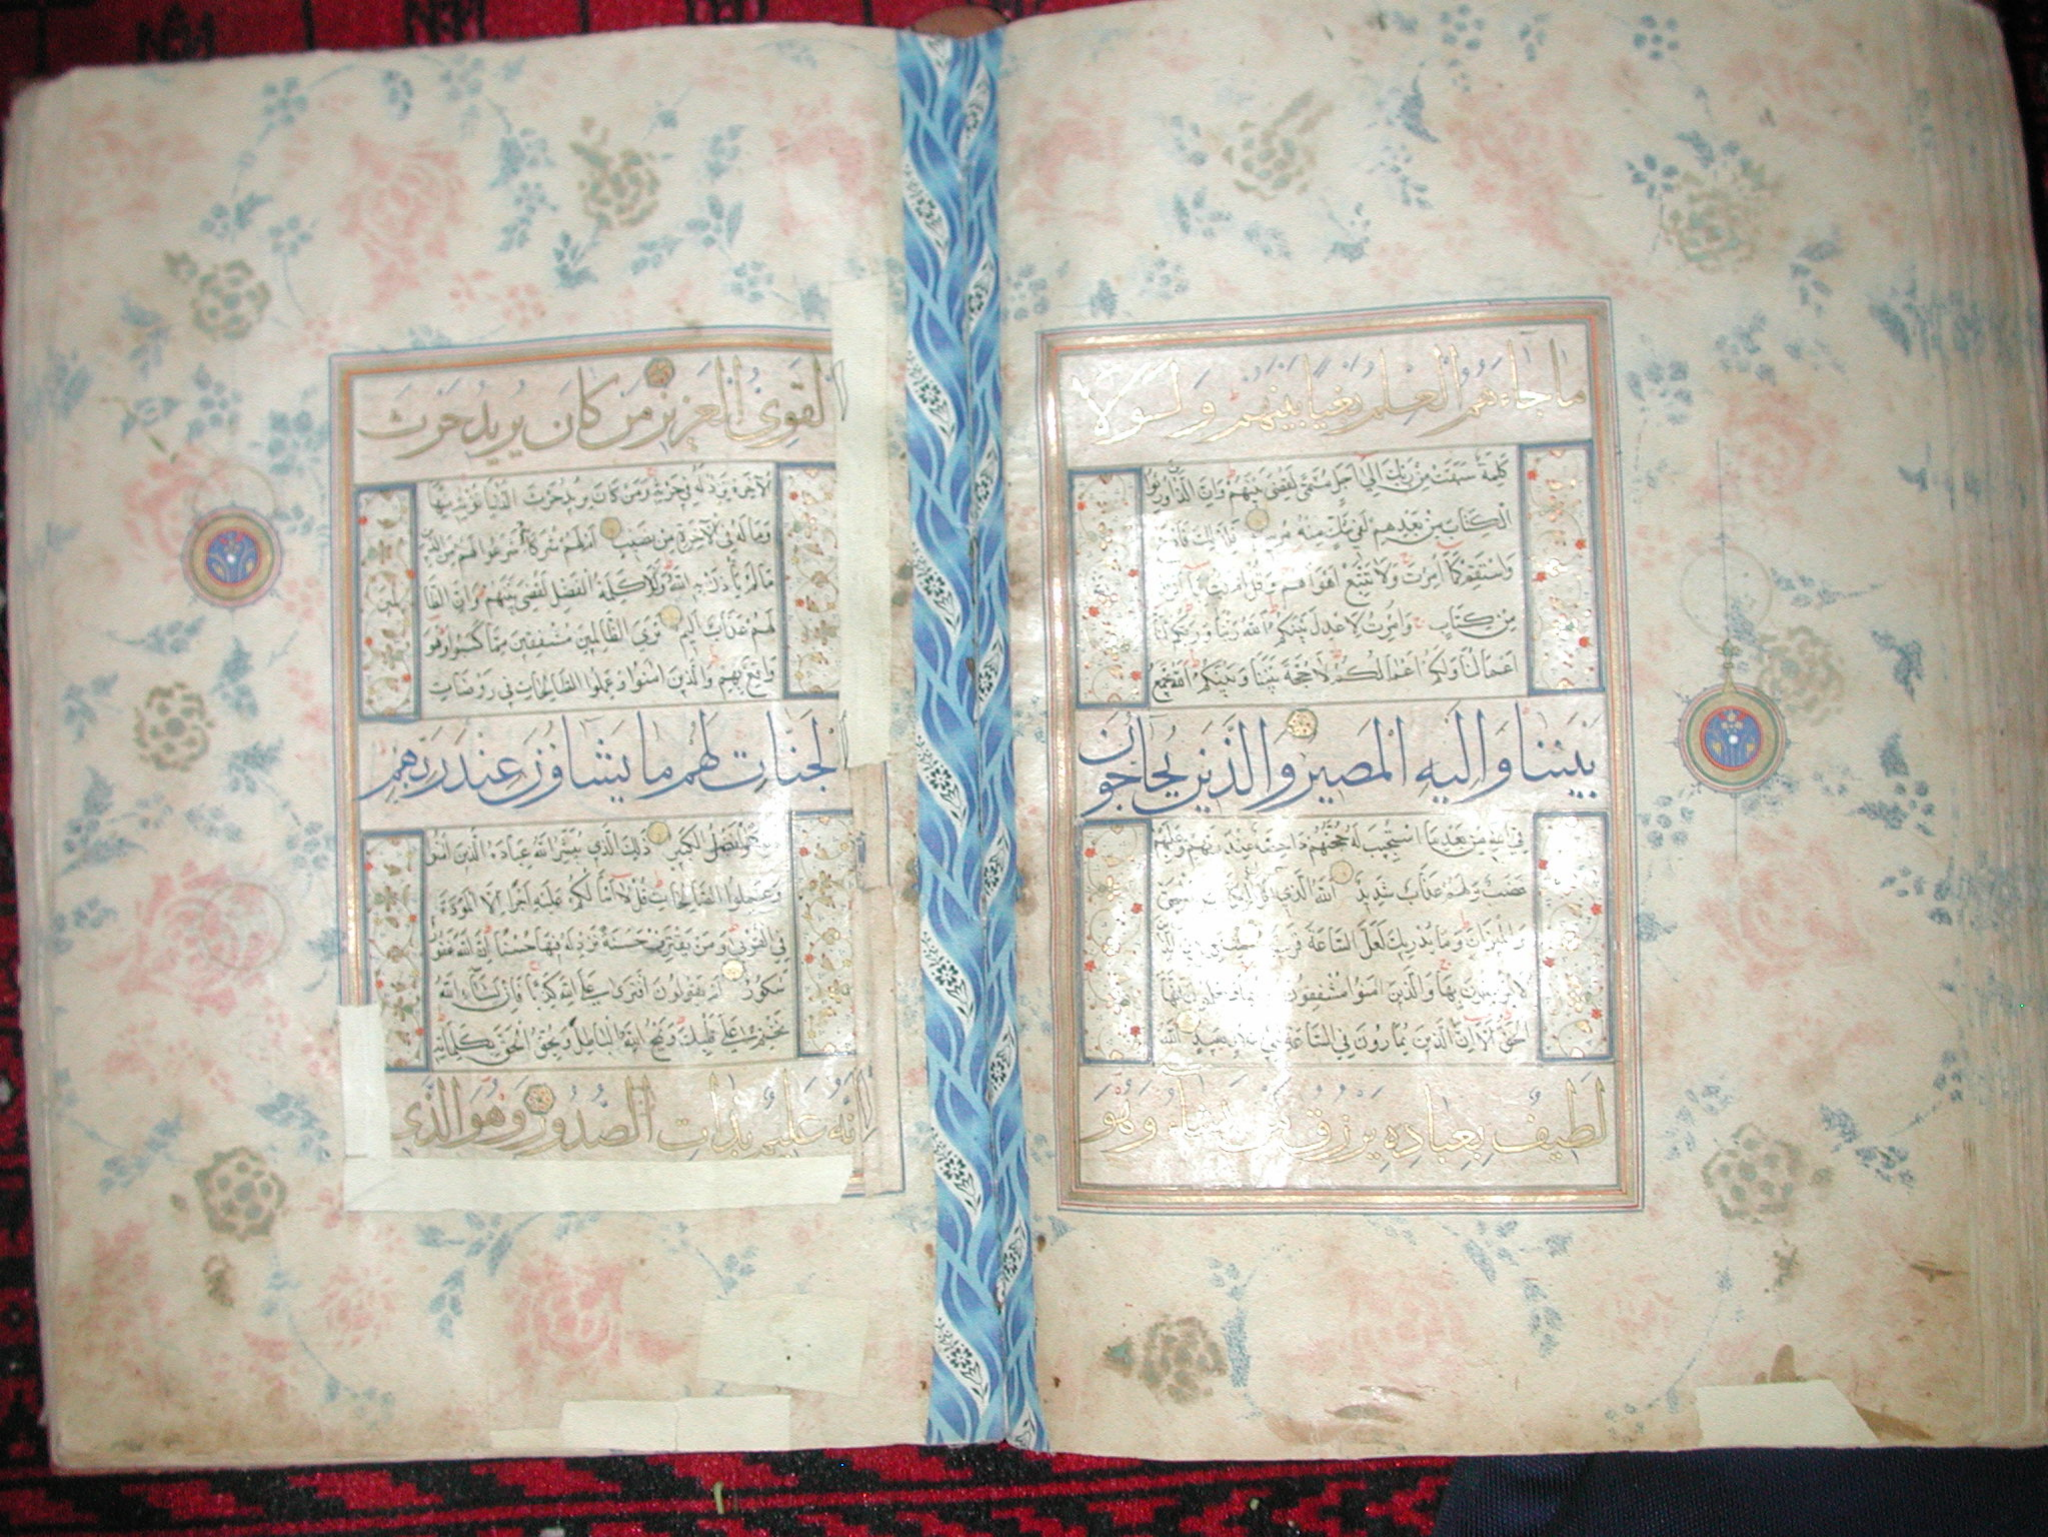 ما جاءهم العلم بغيا بينهم ولولا
كلمة سبقت من ربك الى اجل مسمى لقضى بينهم وان الذين اورثوا
الكتاب من بعدهم لفى شك منه مريب فلذلك فادع
واستقم كما امرت ولا تتبع اهواءهم وقل امنت بما انزل
من كتاب وامرت لاعدل بينكم الله ربنا وربكم لنا
اعمالنا ولكم اعمالكم لا حجة بيننا وبينكم الله يجمع
بيننا واليه المصير والذين يحاجون
فى الله من بعد ما استجيب له حجتهم داحضة عند ربهم وعليهم
غضب ولهم عذاب شديد الله الذى
والميزان وما يدريك لعل الساعة قريب
لا يؤمنون بها والذين امنوا مشفقون منها ويعلمون انها
الحق الا ان الذين يمارون فى الساعة لفى ضلال بعيد الله
لطيف بعباده يرزق من يشاء وهو
القوى العزيز من كان يريد حرث
الاخرة نزد له فى حرثه ومن كان يريد حرث الدنيا نؤته منها
وما له فى الاخرة من نصيب ام لهم شركاء شرعوا لهم من الدين
ما لم يأذن به الله ولولا كلمة الفصل لقضى بينهم وان الظا
لمين
لهم عذاب اليم ترى الظالمين مشفقين مما كسبوا وهو
واقع بهم والذين امنوا وعملوا الصالحات فى روضات
الجنات لهم ما يشاؤن عند ربهم
ذلك هو الفضل الكبير ذلك الذى يبشر الله عباده الذين امنوا
وعملوا الصالحات قل لا اسألكم عليه اجرا الا المودة
فى القربى ومن يقترف حسنة نزد له فيها حسنا ان الله غفور
شكور ام يقولون افترى على الله كذبا فان يشاء الله
يختم على قلبك ويمح الله الباطل ويحق الحق بكلماته
انه عليم بذات الصدور وهو الذى